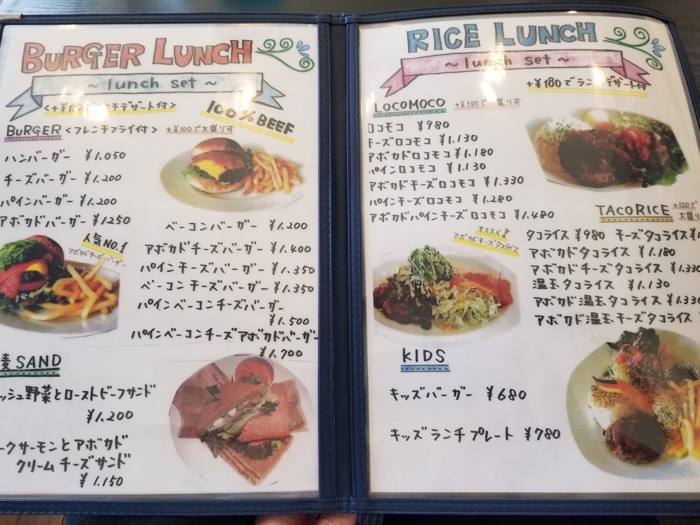 BURGER LUNCH
~ lunch set ~
100% BEEF
BURGER <フレンチフライ付> +¥100で大盛り可
ハンバーガー ¥1.050
チーズバーガー ¥1.200
パインバーガー ¥1.200
アボカドバーガー ¥1250
人気No.1
アボカドチーズバーガー
ベーコンバーガー ¥1.200
アボカドチーズバーガー ¥1.400
パインチーズバーガー ¥1.350
ベーコンチーズバーガー ¥1.350
パインベーコンチーズバーガー
¥1.500
パインベーコンチーズアボカドバーガー
¥1.700
SAND
ッシュ野菜とローストビーフサンド
¥1.200
ークサーモンとアボカド
クリームチーズサンド
¥1.150
RICE LUNCH
~ lunch set ~
+¥180でランチデザート付
LOCOMOCO +¥100で大盛り可
ロコモコ ¥980
チーズロコモコ ¥1.130
アボカドロコモコ ¥1.180
パインロコモコ ¥1.130
アボカドチーズロコモコ ¥1.330
パインチーズロコモコ ¥1.280
アボカドパインチーズロコモコ ¥1.480
オススメ!
アボカドチーズタコライス
TACORICE +¥100で
大盛り
タコライス ¥980 チーズタコライス
アボカドタコライス ¥1.180
アボカドチーズタコライス ¥1.33
温玉タコライス ¥1.130
アボカド温玉タコライス ¥1.33
アボカド温玉チーズタコライス
KIDS
キッズバーガー ¥680
キッズランチプレート ¥780